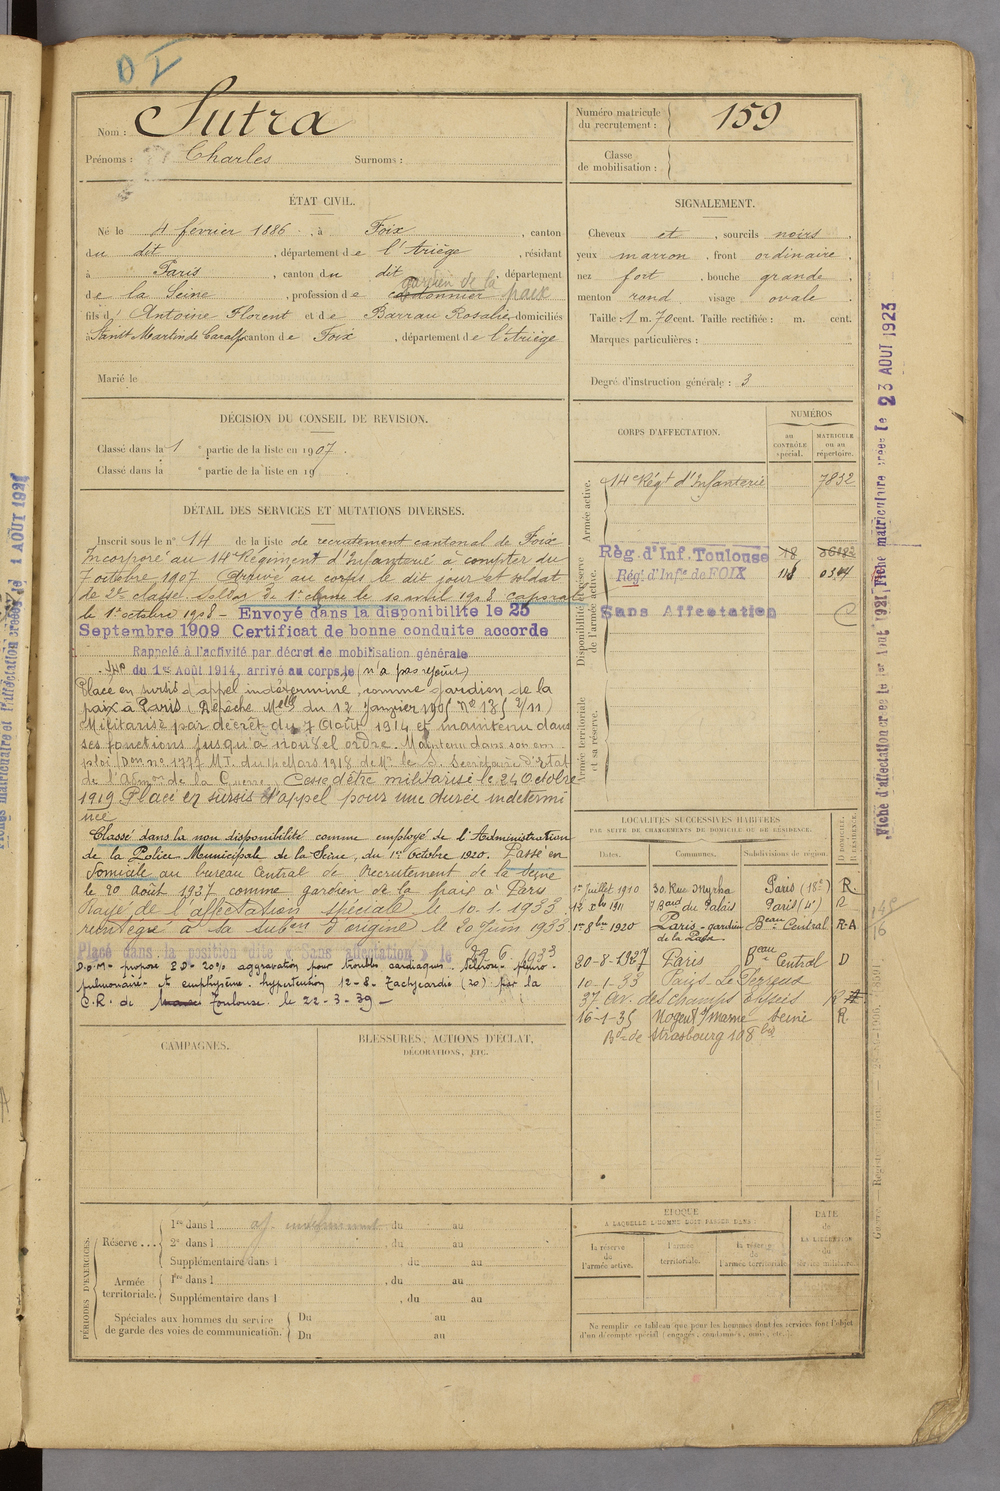 D I
Nom : Sutra
Prénoms : Charles Surnoms :
Numéro matricule
du recrutement : 159
Classe
de mobilisation :
ÉTAT CIVIL.
Né le 4 février 1886, à Foix, canton
du dit, département de l'Ariège, résidant
à Paris, canton du dit, département
gardien de la
de la Seine, profession de cordonnier paix
fils d'Antoine Florent et de Barrau Rosalie, domiciliés
à Saint Martin de Caralp canton de Foix, département de l'Ariège
Marié le
SIGNALEMENT.
Cheveux et, sourcils noirs,
yeux marron, front ordinaire,
nez fort, bouche grande,
menton rond, visage ovale.
Taille : 1 m. 70 cent. Taille rectifiée : m. cent.
Marques particulières :
Degré d'instruction générale : 3
DÉCISION DU CONSEIL DE REVISION.
Classé dans la 1e partie de la liste en 1907.
Classé dans la e partie de la liste en 19
DÉTAIL DES SERVICES ET MUTATIONS DIVERSES.
Inscrit sous le n° 14 de la liste de recrutement cantonal de Foix
Incorporé au 14e Régiment d'Infanterie à compter du
7 octobre 1907 Arrivé au corps le dit jour et soldat
de 2e classe. Soldat de 1e classe le 10 avril 1908 caporal
le 1er octobre 1908 - Envoyé dans la disponibilite le 25
Septembre 1909 Certificat de bonne conduite accorde
Rappelé à l'activité par décret de mobilisation générale
du 1er Août 1914, arrivé au corps le (n'a pas rejoint)
Placé en sursis d'appel indéterminé, comme gardien de la
paix à Paris (Dépêche Melle du 12 Janvier 1905 No 135 2/11)
Militarisé par décret du 7 Août 1914 et maintenu dans
ses fonctions jusqu'à nouvel ordre. Maintenu dans son em-
ploi Don no 1777 M.T. du 14 Mars 1918 de Mr le S. Secrétaire d'Etat
de l'Admon de la Guerre. Cesse d'être militarisé le 24 Octobre
1919 Placé en sursis d'appel pour une durée indétermi
née
Classé dans la non disponibilité comme employé de l'Administration
de la Police Municipale de la Seine, du 1er Octobre 1920. Passé en
domicile au bureau Central de Recrutement de la Seine
le 20 Août 1927 comme gardien de la paix à Paris
Rayé de l'affectation spéciale le 10.1.1933
réintégré à sa subon d'origine le 20 Juin 1933
Placé dans la position dite « Sans affectation » le 29.6.1933
D.O.M - propose P.D - 20% aggravation pour troubles cardiaques. Sclérose pleuro-
pulmonaire et emphysème. hypertension 12-8 - Tachycardie (20) par la
C.R. de Toulouse le 22-3-39 -
CORPS D'AFFECTATION.
NUMÉROS
au
CONTRÔLE
spécial.
MATRICULE
ou au
répertoire.
Armée active.
14e Régt d'Infanterie 7832
Disponibilité et réserve
de l'armée active.
Rég. d'Inf. Toulouse 18
Régt d'Infie de FOIX
Sans Affectation C
Armée territoriale
et sa réserve.
LOCALITÉS SUCCESSIVES HABITÉES
PAR SUITE DE CHANGEMENTS DE DOMICILE OU DE RÉSIDENCE.
Dates. Communes. Subdivisions de région. D. DOMICILE. R. RÉSIDENCE.
1er Juillet 1910 30, Rue Myrha Paris (18e) R.
12 Xbre 1911 7 Bard du Palais Paris (4e) R
1er 8bre 1920 Paris - gardien de la Paix Beau Central R-A
20-8-1927 Paris Beau Central D
10-1-33 Paris Le Perreux
37 Av. des Champs Elysées R
16-1-35 Nogent s/ marne Seine R.
Bd de Strasbourg 108 bis
CAMPAGNES.
BLESSURES, ACTIONS D'ÉCLAT,
DÉCORATIONS, ETC.
PÉRIODES D'EXERCICES.
Réserve...
1re dans l du au
2e dans l, du au
Supplémentaire dans l, du au
Armée
territoriale.
1re dans l, du au
Supplémentaire dans l, du au
Spéciales aux hommes du service
de garde des voies de communication.
Du au
Du au
ÉPOQUE
À LAQUELLE L'HOMME DOIT PASSER DANS :
la réserve
de
l'armée active.
l'armée
territoriale.
la réserve
de
l'armée territoriale.
DATE
de
LA LIBÉRATION
du
service militaire.
Ne remplir ce tableau que pour les hommes dont les services font l'objet
d'un décompte spécial (engagés, condamnés, omis, etc.).
Fiche d'affectation créée le 1er Août 1921 Fiche matriculaire créée le 23 AOUT 1923